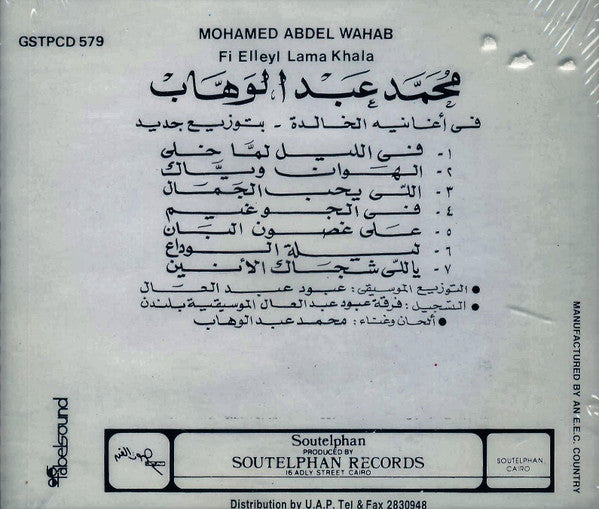 MOHAMED ABDEL WAHAB
GSTPCD 579
Fi Elleyl Lama Khala
محمد عبد الوهاب
في أغانيه الخالدة - بتوزيع جديد
١- في الليل لما خلى
٢- الهوان وياك
٣- اللي يحب الجمال
٤- في الجو غيم
٥- على غصون البان
٦- ليلة الوداع
٧- ياللي شجاك الأنين
● التوزيع الموسيقى: عبود عبد العال
● التسجيل: فرقة عبود عبد العال الموسيقية بلندن
● ألحان وغناء: محمد عبد الوهاب
MANUFACTURED BY AN E.E.C. COUNTRY
relaxsound
صوت الفن
Soutelphan
PRODUCED BY
SOUTELPHAN RECORDS
16 ADLY STREET CAIRO
SOUTELPHAN
CAIRO
Distribution by U.A.P. Tel & Fax 2830948